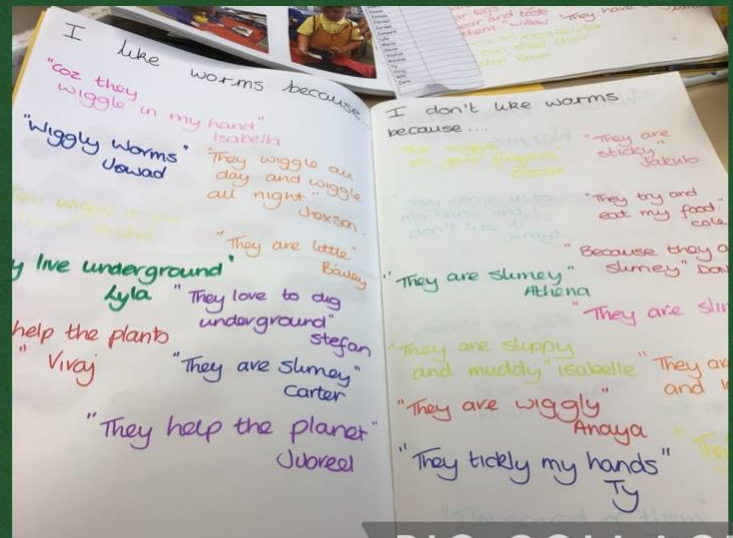 I like worms because...
"coz they
wiggle in my hand"
Isabella
"Wiggly Worms"
Jowad
"They wiggle all
day and wiggle
all night"
Jaxson.
"They are little"
Bailey
y live underground"
Lyla
"They love to dig
underground"
Stefan
help the plants
" Vivaj
"They are slimey"
Carter
"They help the planet"
Jubreel
I don't like worms
because...
"They are
sticky"
Jakub
"They come
my house and
don't like
"They try and
eat my food."
Cole
"Because they a
slimey"
"They are slimey"
Athena
"They are sli
"They are slippy
and muddy" Isabelle
"They ar
and
"They are wiggly"
Anaya
"They tickly my hands"
Ty
"I'm scared of them"